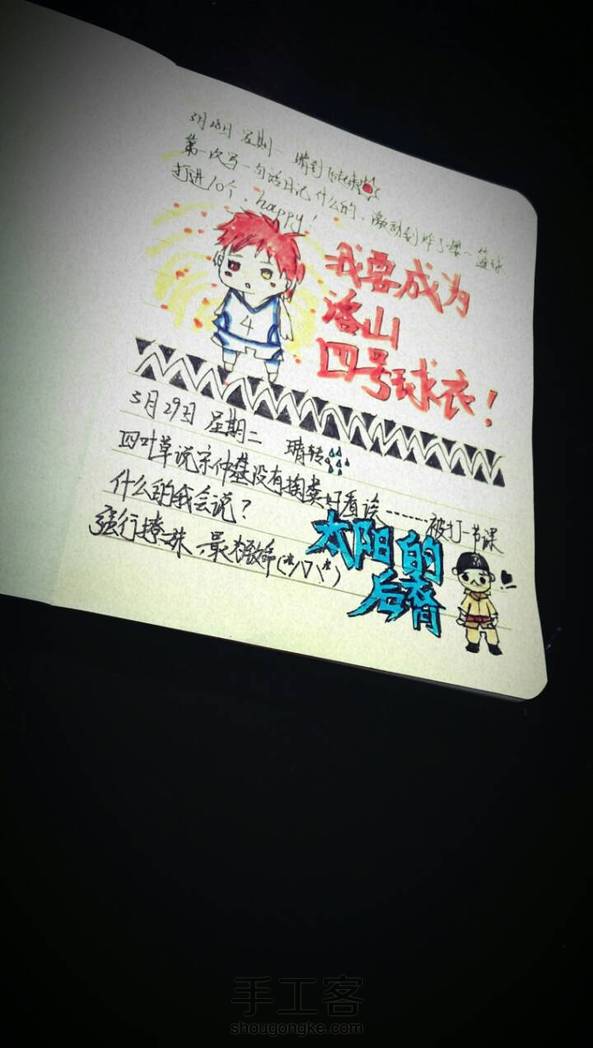 3月28日 星期一 晴到
第一次写一句话日记什么的,激动到炸了嘿~篮球
打进10个,happy!
4
我要成为
洛山
四号球衣!
3月29日 星期二 晴转
四叶草说宋仲基没有掏粪好看诶------被打一节课
什么的我会说?
强行撩妹,最
太阳的
后裔
手工客
shougongke.com